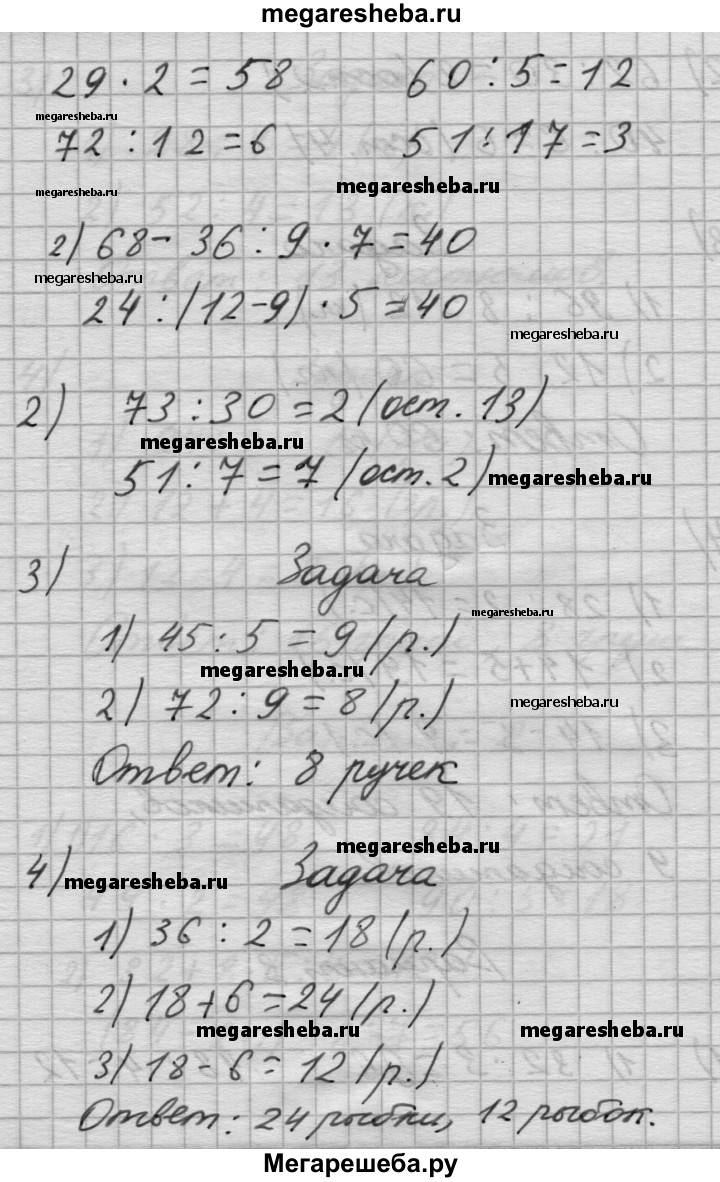 megaresheba.ru
29 · 2 = 58 60 : 5 = 12
megaresheba.ru
72 : 12 = 6 51 : 17 = 3
megaresheba.ru megaresheba.ru
2) 68 - 36 : 9 · 7 = 40
megaresheba.ru
24 : (12-9) · 5 = 40
megaresheba.ru
2) 73 : 30 = 2 (ост. 13)
megaresheba.ru
51 : 7 = 7 (ост. 2) megaresheba.ru
3) Задача
megaresheba.ru
1) 45 : 5 = 9 (р.)
megaresheba.ru
2) 72 : 9 = 8 (р.) megaresheba.ru
Ответ: 8 ручек
megaresheba.ru
4) megaresheba.ru Задача
1) 36 : 2 = 18 (р.)
2) 18 + 6 = 24 (р.)
megaresheba.ru megaresheba.ru
3) 18 - 6 = 12 (р.)
Ответ: 24 рыбки, 12 рыбок.
Мегарешеба.ру